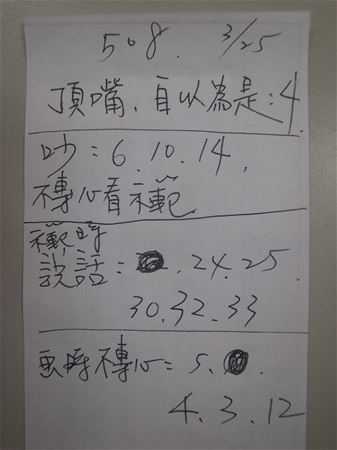 508. 3/25
頂嘴、自以為是:4
吵:6.10.14.
不專心看示範
示範時
說話: .24.25.
30.32.33
不專心:5. .
4.3.12